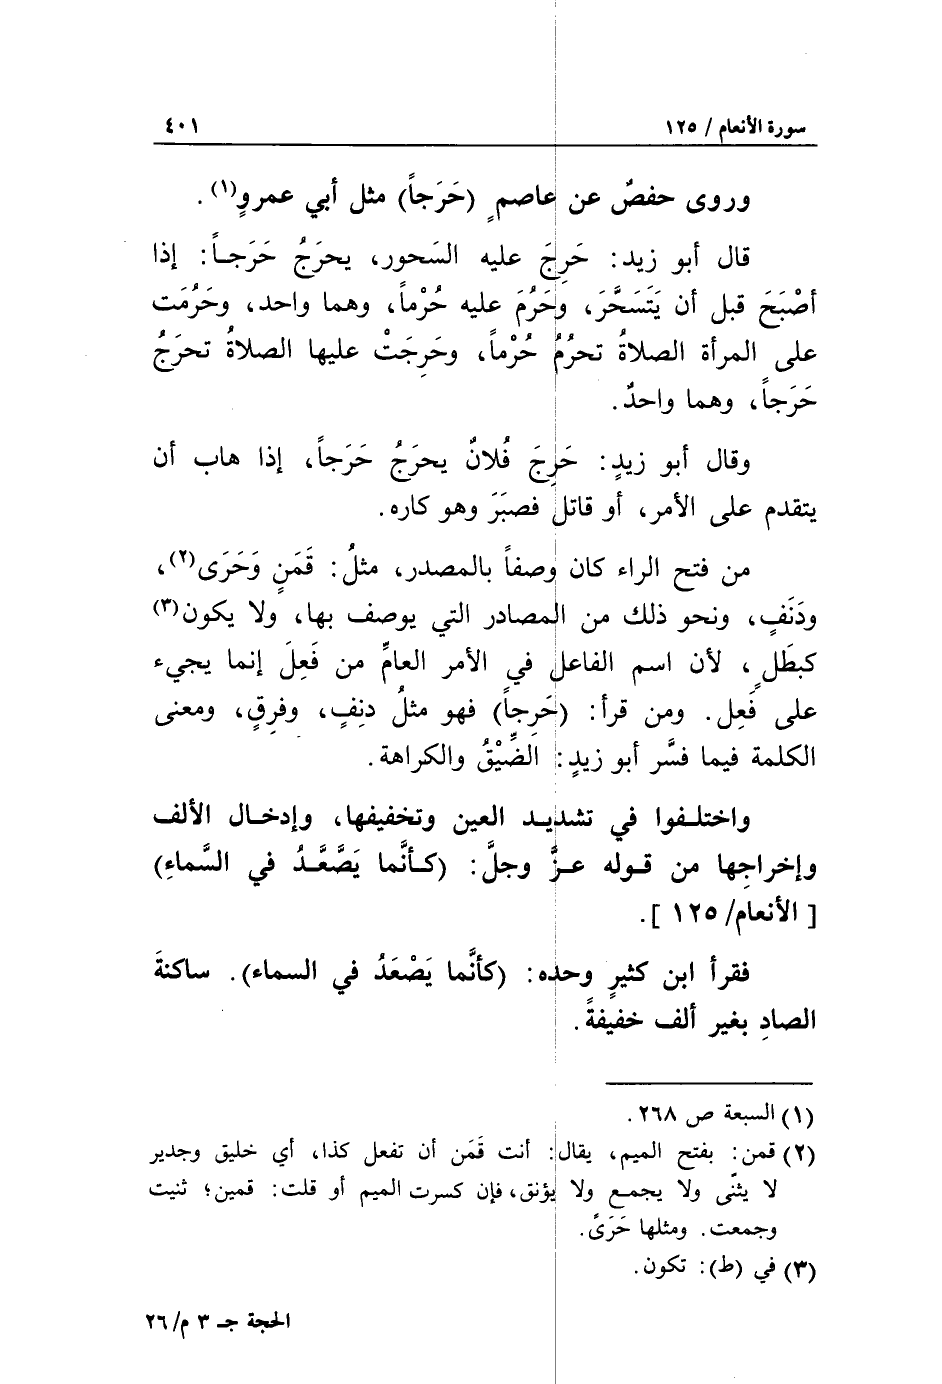 سورة الأنعام / ١٢٥
٤٠١
وروى حفصٌ عن عاصمٍ (حَرَجاً) مثل أبي عمروٍ(١).
قال أبو زيد: حَرِجَ عليه السَحور، يحرَجُ حَرَجاً: إذا
أصْبَحَ قبل أن يَتَسَحَّرَ، وحَرُمَ عليه حُرْماً، وهما واحد، وحَرُمَت
على المرأة الصلاةُ تحرُمُ حُرْماً، وحَرِجَتْ عليها الصلاةُ تحرَجُ
حَرَجاً، وهما واحدٌ.
وقال أبو زيدٍ: حَرِجَ فُلانٌ يحرَجُ حَرَجاً، إذا هاب أن
يتقدم على الأمر، أو قاتل فصبَرَ وهو كاره.
من فتح الراء كان وصفاً بالمصدر، مثلُ: قَمَنٍ وَحَرَى(٢)،
ودَنَفٍ، ونحو ذلك من المصادر التي يوصف بها، ولا يكون(٣)
كبَطَلٍ، لأن اسم الفاعل في الأمر العامِّ من فَعِلَ إنما يجيء
على فَعِل. ومن قرأ: (حَرِجاً) فهو مثلُ دنِفٍ، وفرِقٍ، ومعنى
الكلمة فيما فسَّر أبو زيدٍ: الضِّيْقُ والكراهة.
واختلفوا في تشديد العين وتخفيفها، وإدخال الألف
وإخراجِها من قوله عزَّ وجلَّ: (كأنَّما يَصَّعَّدُ في السَّماءِ)
[الأنعام/ ١٢٥].
فقرأ ابن كثيرٍ وحده: (كأنَّما يَصْعَدُ في السماء). ساكنةَ
الصادِ بغير ألف خفيفةً.
(١) السبعة ص ٢٦٨.
(٢) قمن: بفتح الميم، يقال: أنت قَمَن أن تفعل كذا، أي خليق وجدير
لا يثنّى ولا يجمع ولا يؤنق، فإن كسرت الميم أو قلت: قمين؛ ثنيت
وجمعت. ومثلها حَرَىً.
(٣) في (ط): تكون.
الحجة جـ ٣ م/٢٦